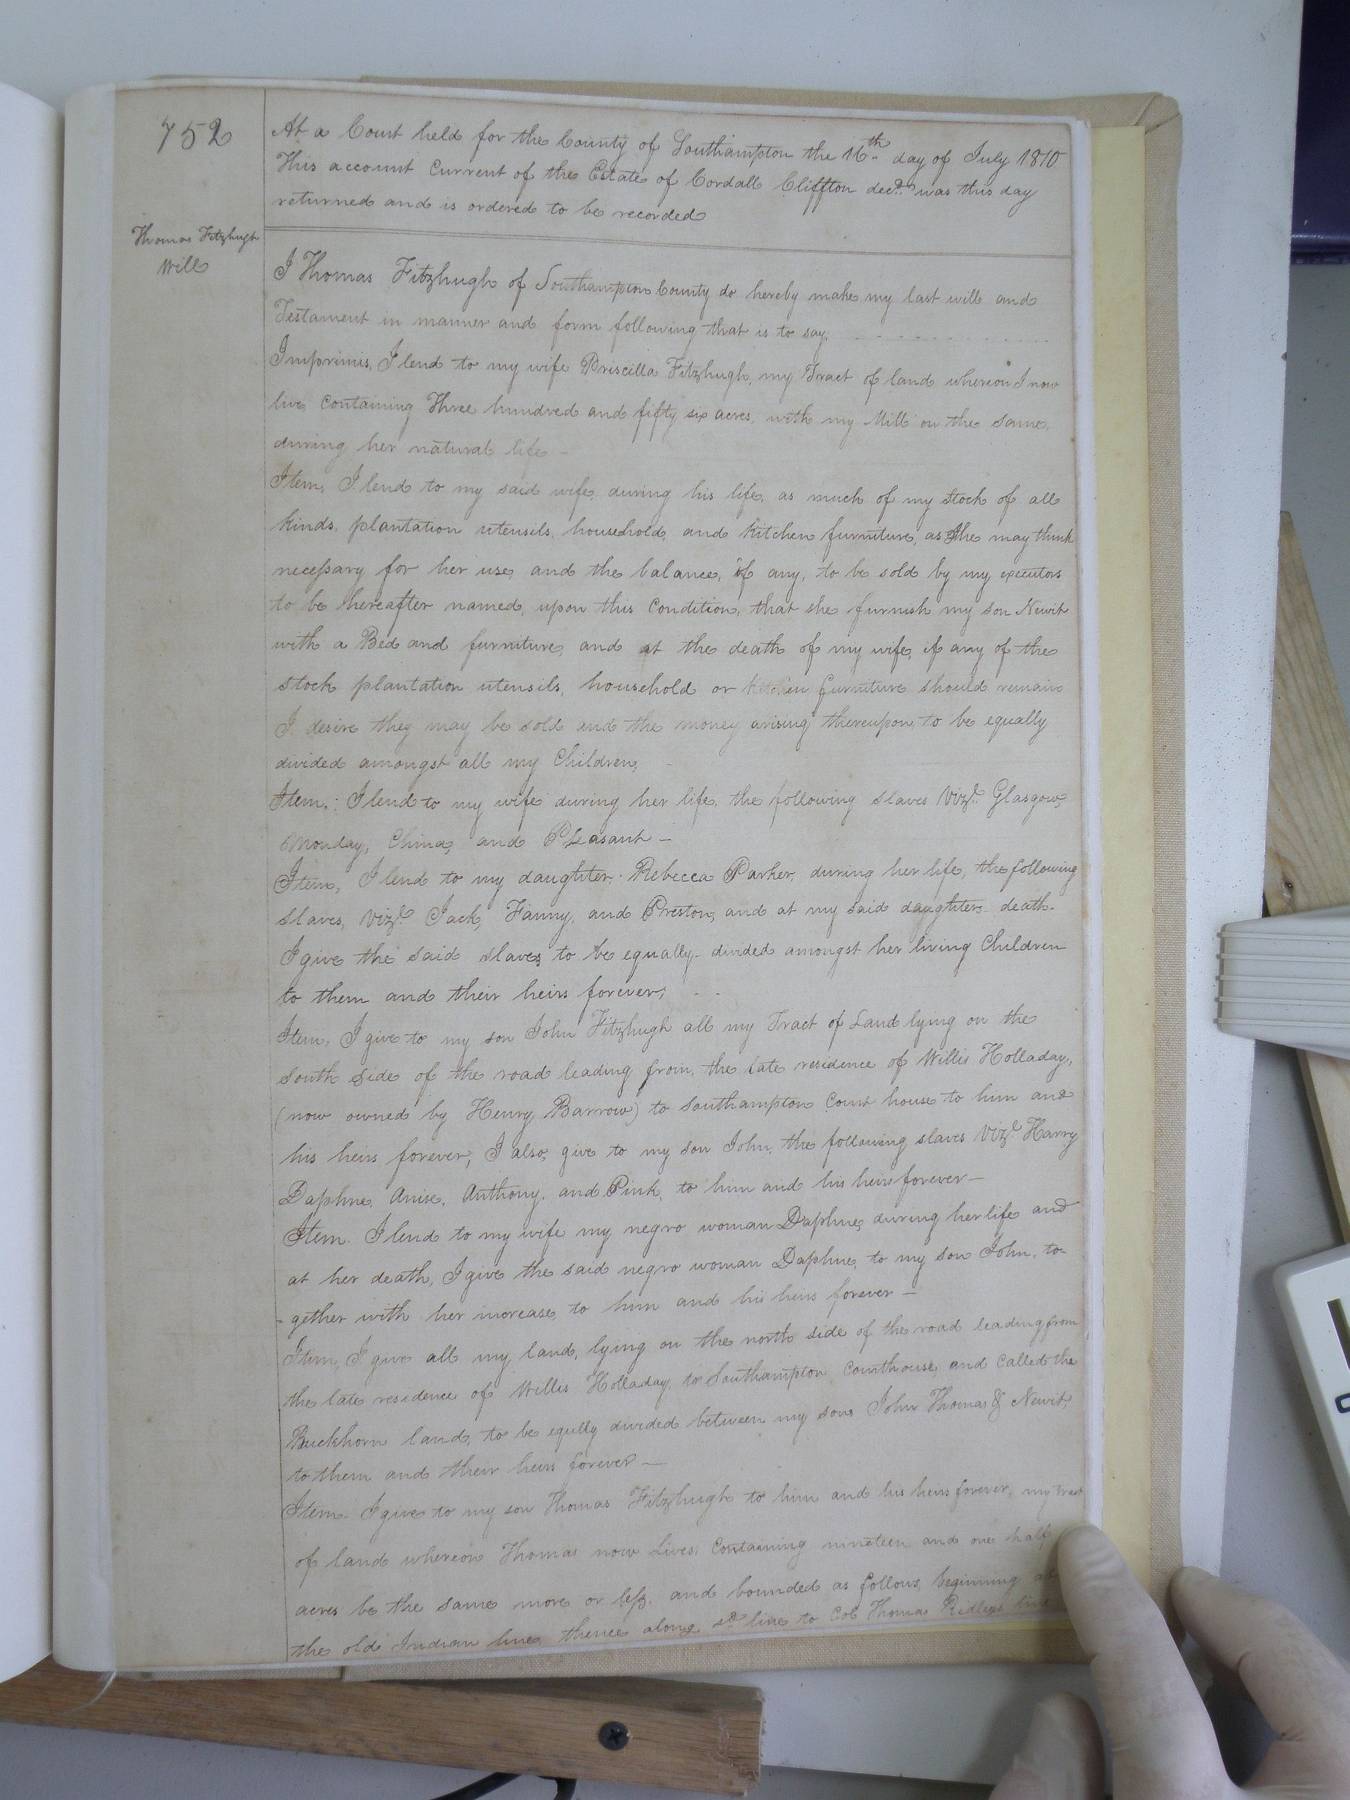 752
At a Court held for the County of Southampton the 16th day of July 1810
This account Current of the Estate of Cordall Cliffton decd. was this day
returned and is ordered to be recorded
Thomas Fitzhugh
Will
I Thomas Fitzhugh of Southampton County do hereby make my last will and
Testament in manner and form following that is to say.
Imprimis, I lend to my wife Priscilla Fitzhugh, my Tract of land whereon I now
live, Containing Three hundred and fifty six acres, with my Mill on the same,
during her natural life -
Item, I lend to my said wife during his life, as much of my Stock of all
kinds, plantation utensils, household, and kitchen furniture, as she may think
necessary for her use, and the balance, if any, to be sold by my executors
to be hereafter named, upon this Condition, that she furnish my son Newit
with a Bed and furniture, and at the death of my wife, if any of the
stock plantation utensils, household or kitchen furniture should remain
I desire they may be sold and the money arising thereupon, to be equally
divided amongst all my Children,
Item, I lend to my wife during her life, the following slaves Vizd. Glasgow,
Monday, China, and Pleasant -
Item, I lend to my daughter, Rebecca Parker, during her life, the following
slaves, Vizd. Jack, Fanny, and Preston, and at my said daughters death.
I give the said slaves to be equally divided amongst her living Children
to them and their heirs forever,
Item, I give to my son John Fitzhugh all my Tract of Land lying on the
South side of the road leading from, the late residence of Willis Holladay,
(now owned by Henry Barrow) to Southampton Court house to him and
his heirs forever, I also, give to my son John, the following slaves Vizd. Harry
Daphne, Anise, Anthony, and Pink, to him and his heirs forever -
Item. I lend to my wife my negro woman Daphne, during her life and
at her death, I give the said negro woman Daphne, to my son John, to-
-gether with her increase, to him and his heirs forever -
Item, I give all my land, lying on the north side of the road leading from
the late residence of Willis Holladay, to Southampton, Courthouse, and Called the
Buckhorn land, to be equlty divided between my sons John Thomas & Newit,
to them and their heirs forever -
Item. I give to my son Thomas Fitzhugh to him and his heirs forever, my tract
of land whereon Thomas now Lives, Containing nineteen and one half
acres be the same more or less. and bounded as follows, beginning at
the old Indian line, thence along sd. line to Col Thomas Ridleys line